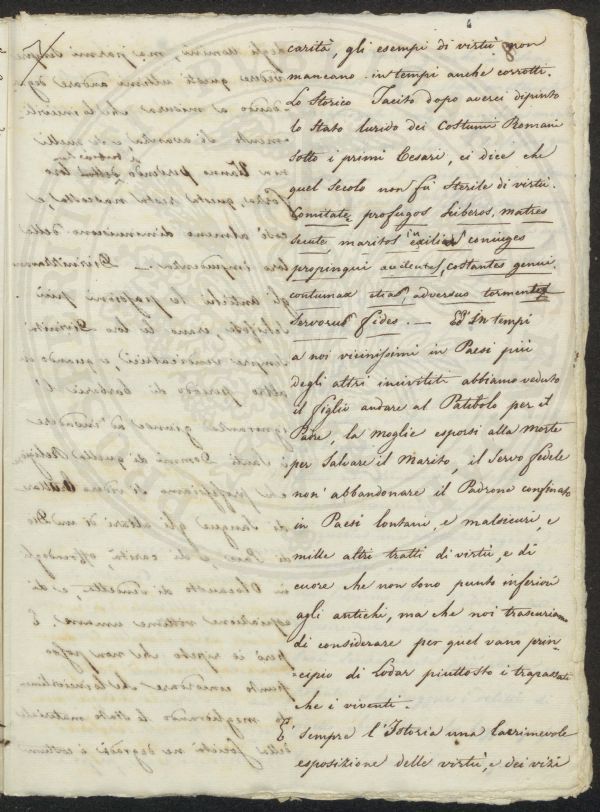 6
8
carità, gli esempi di virtù non
mancano in tempi anche corrotti.
Lo Storico Tacito dopo averci dipinto
lo stato lurido dei Costumi Romani
sotto i primi Cesari, ci dice che
quel secolo non fu sterile di virtù.
Comitate profugos liberos, matres
secute maritos in exilia coniuges
propinqui audentes, costantes generi.
contumax etiam adversus tormentos
servorum fides. — Ed in tempi
a noi vicinissimi in Paesi più
degli altri inciviliti abbiamo veduto
il figlio andare al Patibolo per il
Padre, la moglie esporsi alla morte
per salvare il Marito, il Servo fedele
non abbandonare il Padrone confinato
in Paesi lontani, e malsicuri, e
mille altri tratti di virtù, e di
cuore che non sono punto inferiori
agli antichi, ma che noi trascuriamo
di considerare per quel vano prin-
=cipio di lodar piuttosto i trapassati
che i viventi.
E' sempre l'Istoria una lacrimevole
esposizione delle virtù, e dei vizi